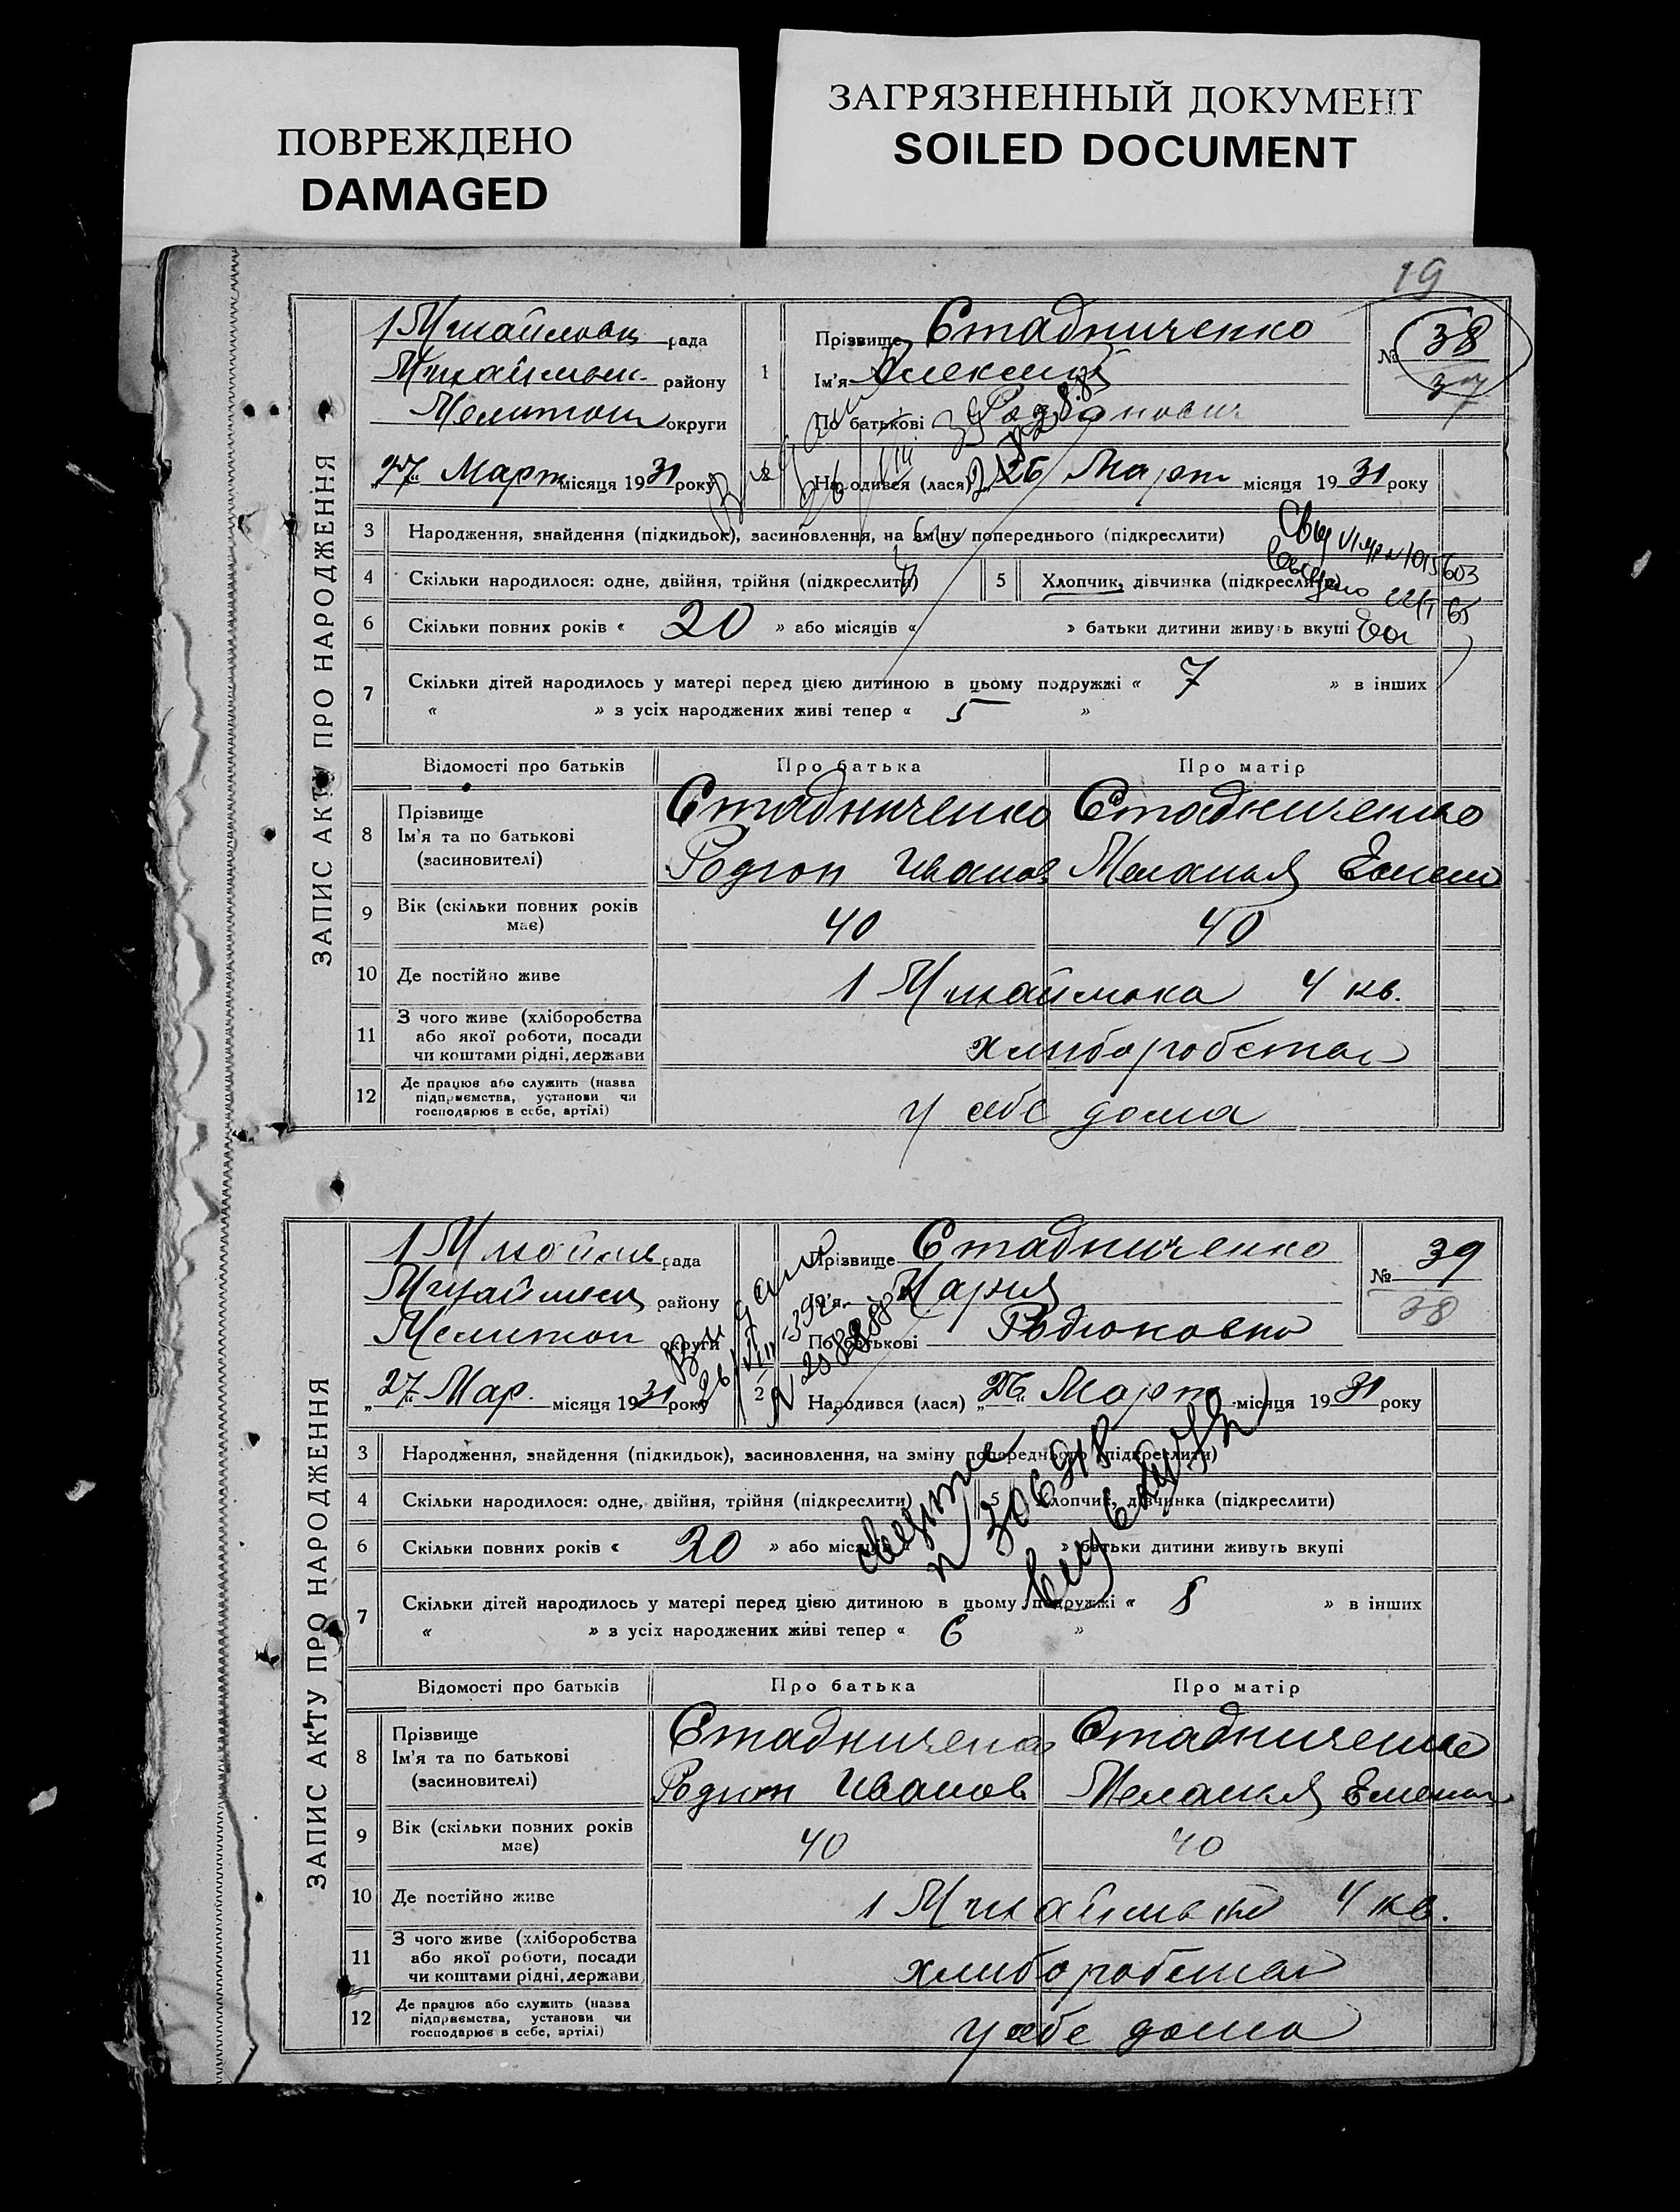 ПОВРЕЖДЕНО
DAMAGED
ЗАГРЯЗНЕННЫЙ ДОКУМЕНТ
SOILED DOCUMENT
19
ЗАПИС АКТУ ПРО НАРОДЖЕННЯ
1 Михайловск рада
району
Мелитоп округи
„27“ Март місяця 1931 року
1
Прізвище Стадниченко
Ім'я Алексей
По батькові Родионович
№ 38
37
2 Народився (лася) „26“ Март місяця 1931 року
3 Народження, знайдення (підкидьок), засиновлення, на зміну попереднього (підкреслити)
4 Скільки народилося: одне, двійня, трійня (підкреслити)
5 Хлопчик, дівчинка (підкреслити)
6 Скільки повних років « 20 » або місяців « » батьки дитини живуть вкупі
7 Скільки дітей народилось у матері перед цією дитиною в цьому подружжі « 7 » в інших
« » з усіх народжених живі тепер « 5 »
Відомості про батьків Про батька Про матір
8 Прізвище
Ім'я та по батькові
(засиновителі)
Стадниченко Стадниченко
Родион Иванов Мелания Емел
9 Вік (скільки повних років має) 40 40
10 Де постійно живе 1 Михайловка 4 кв.
11 З чого живе (хліборобства
або якої роботи, посади
чи коштами рідні, держави
хлиборобства
12 Де працює або служить (назва
підприємства, установи чи
господарює в себе, артілі)
у себе дома
ЗАПИС АКТУ ПРО НАРОДЖЕННЯ
1 Михайлов рада
району
Мелитоп округи
„27“ Мар. місяця 1931 року
Прізвище Стадниченко
Ім'я Мария
По батькові Родионовна
№ 39
38
2 Народився (лася) „26“ Март місяця 1931 року
3 Народження, знайдення (підкидьок), засиновлення, на зміну попереднього (підкреслити)
4 Скільки народилося: одне, двійня, трійня (підкреслити)
5 Хлопчик, дівчинка (підкреслити)
6 Скільки повних років « 20 » або місяців « » батьки дитини живуть вкупі
7 Скільки дітей народилось у матері перед цією дитиною в цьому подружжі « 8 » в інших
« » з усіх народжених живі тепер « 6 »
Відомості про батьків Про батька Про матір
8 Прізвище
Ім'я та по батькові
(засиновителі)
Стадниченко Стадниченко
Родион Иванов Мелания Емельян
9 Вік (скільки повних років має) 40 40
10 Де постійно живе 1 Михайловка 4 кв.
11 З чого живе (хліборобства
або якої роботи, посади
чи коштами рідні, держави
хлиборобства
12 Де працює або служить (назва
підприємства, установи чи
господарює в себе, артілі)
у себе дома